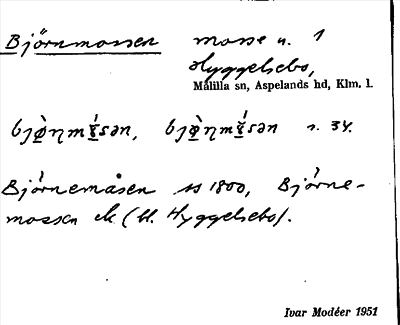 Björnmossen mosse n. 1
Hyggelsebo,
Målilla sn, Aspelands hd, Klm. l.
s. 34.
Björnemåsen 1800, Björne-
mossen ek (bl. Hyggelsebo).
Ivar Modéer 1951